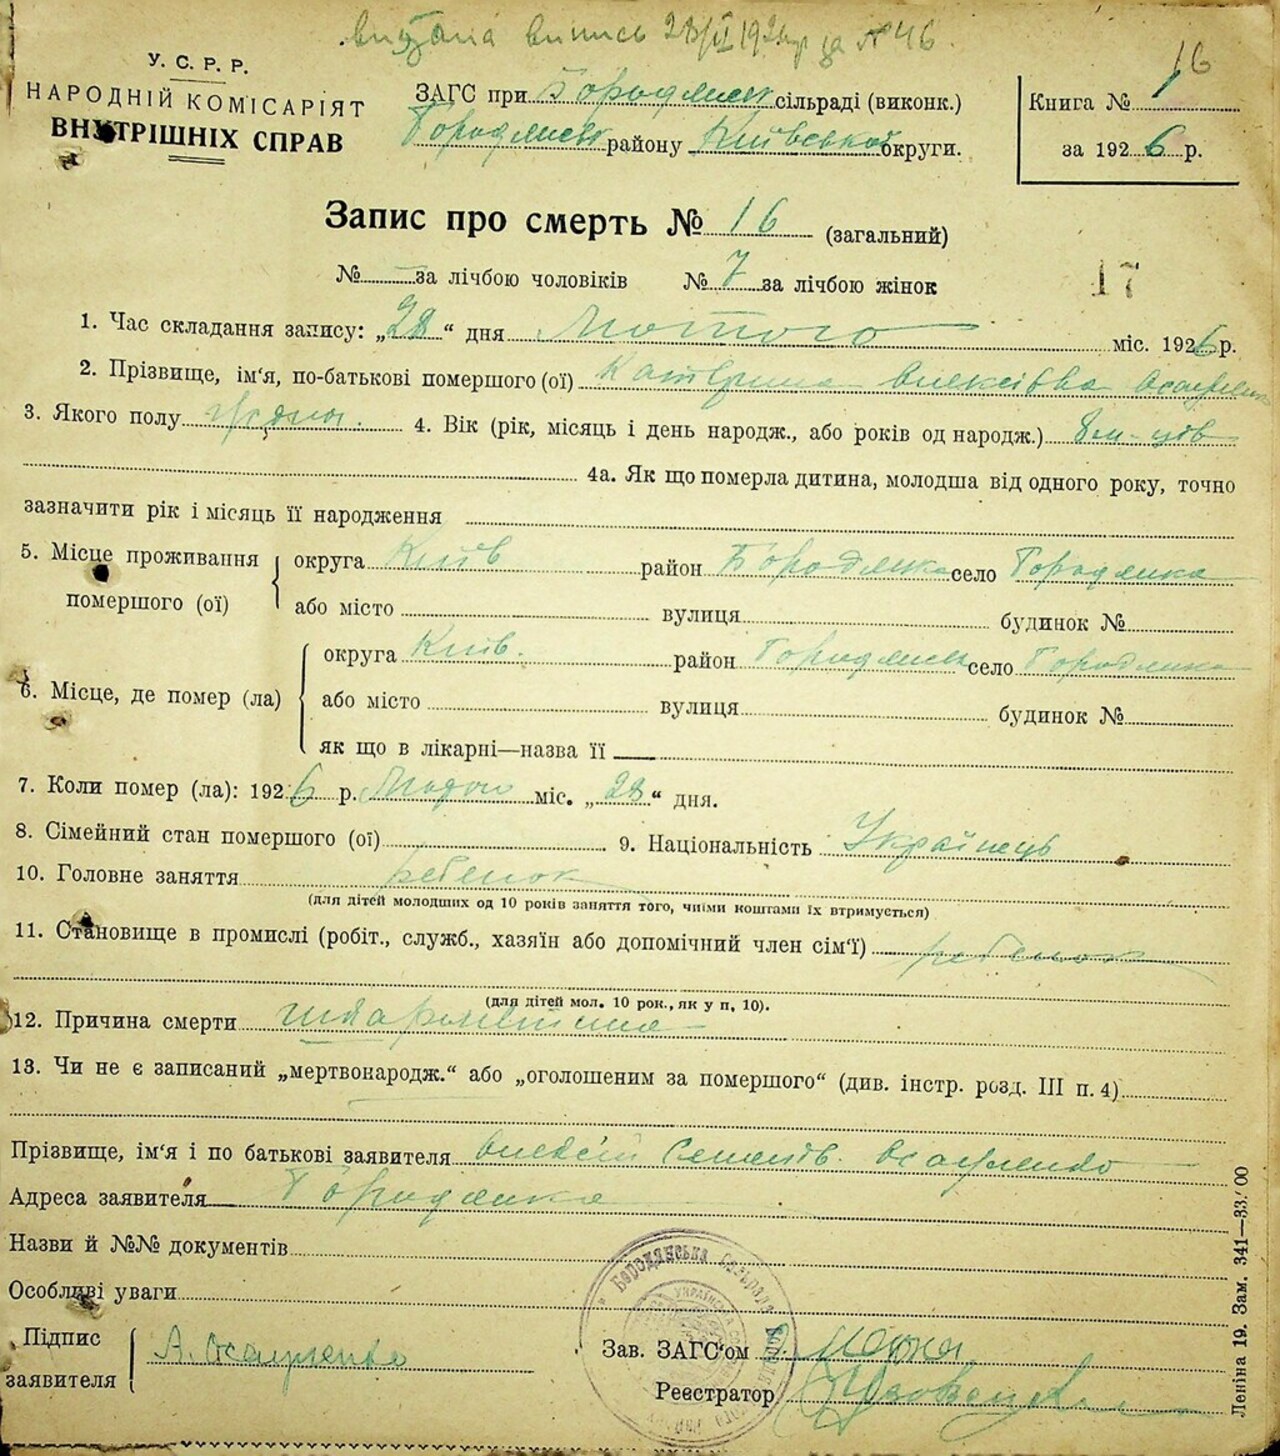 видана випись 28/VI 192 р за № 46.
16
У. С. Р. Р.
НАРОДНІЙ КОМІСАРІЯТ
ВНУТРІШНІХ СПРАВ
ЗАГС при Бородянськ сільраді (виконк.)
Бородянськ району Київської округи.
Книга № 1
за 1926 р.
Запис про смерть № 16 (загальний)
№ — за лічбою чоловіків № 7 за лічбою жінок
17
1. Час складання запису: „28“ дня Лютого міс. 1926 р.
2. Прізвище, ім'я, по-батькові помершого (ої) Катерина Олексіївна
3. Якого полу 4. Вік (рік, місяць і день народж., або років од народж.) 8 м-ців
4а. Як що померла дитина, молодша від одного року, точно
зазначити рік і місяць її народження
5. Місце проживання помершого (ої)
округа Київ район Бородянка село Бородянка
або місто вулиця будинок №
6. Місце, де помер (ла)
округа Київ. район Бородянськ село Бородянка
або місто вулиця будинок №
як що в лікарні—назва її
7. Коли помер (ла): 1926 р. Лютого міс. „28“ дня.
8. Сімейний стан помершого (ої) 9. Національність Українець
10. Головне заняття ребенок
(для дітей молодших од 10 років заняття того, чиїми коштами їх втримується)
11. Становище в промислі (робіт., служб., хазяїн або допомічний член сім'ї) ребенок
(для дітей мол. 10 рок., як у п. 10).
12. Причина смерти
13. Чи не є записаний „мертвонародж.“ або „оголошеним за помершого“ (див. інстр. розд. III п. 4)
Прізвище, ім'я і по батькові заявителя Олексій Семенів.
Адреса заявителя Бородянка
Назви й №№ документів
Особливі уваги
Підпис заявителя
Зав. ЗАГС'ом
Реєстратор
Бородянська сільрада
Леніна 19. Зам. 341—33.'00